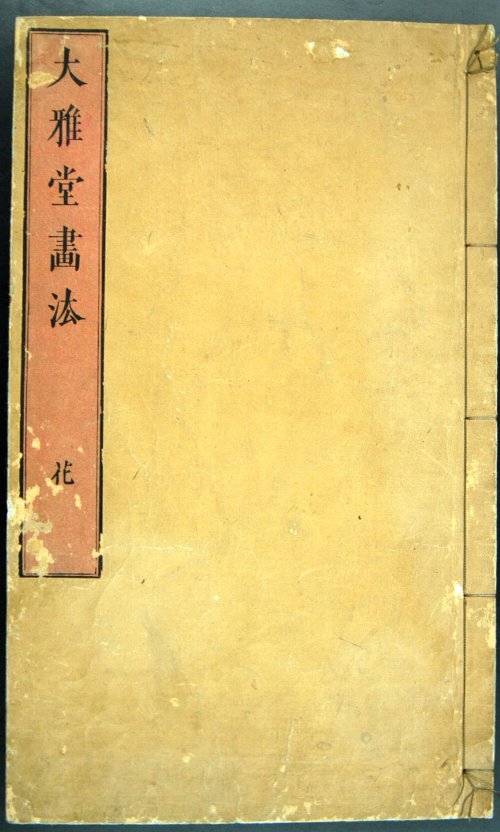 大雅堂畫法
花